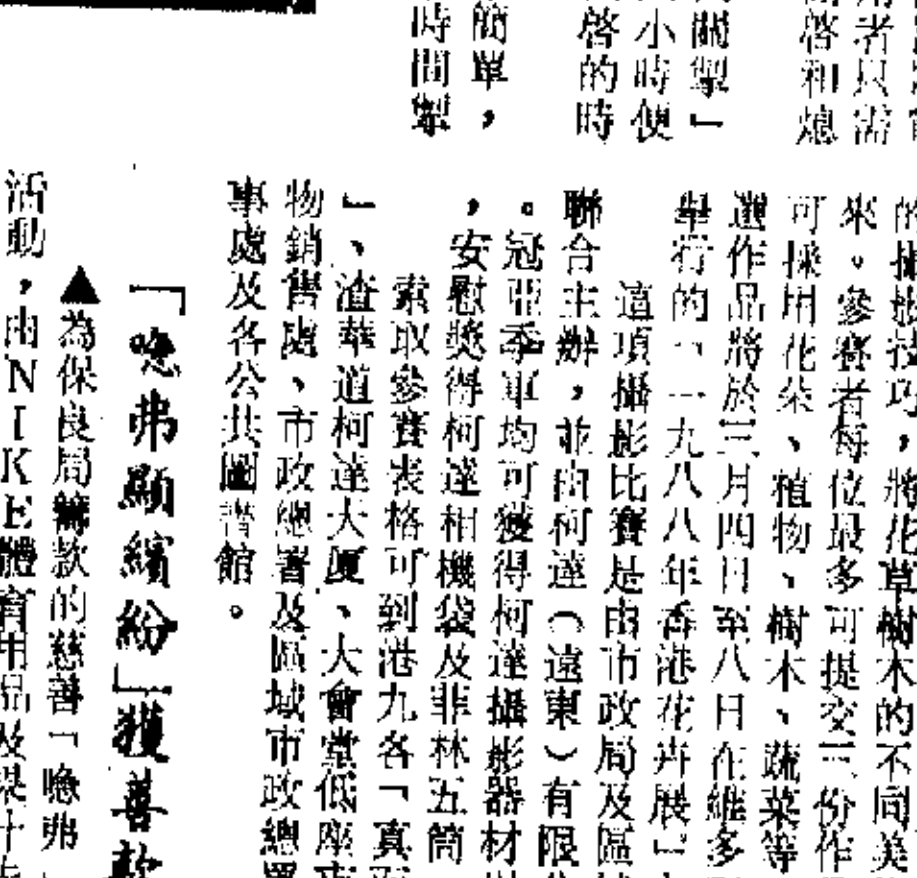 者只需
啓和熄
關掣」
小時便
啓的時
簡單，
時間掣
的攝影技巧，將花草樹木的不同美
來。參賽者每位最多可提交三份作
可採用花朵、植物、樹木、蔬菜等
選作品將於三月四日至八日在維多
舉行的「一九八八年香港花卉展」
這項攝影比賽是由市政局及區
聯合主辦，並由柯達（遠東）有限
。冠亞季軍均可獲得柯達攝影器材
，安慰獎得柯達相機袋及菲林五筒
索取參賽表格可到港九各「真
」、渣華道柯達大厦、大會堂低座
物銷售處、市政總署及區域市政總署
事處及各公共圖書館。
「喼弗顯繽紛」獲善款
▲為保良局籌款的慈善「喼弗」
活動，由NIKE體育用品及渠